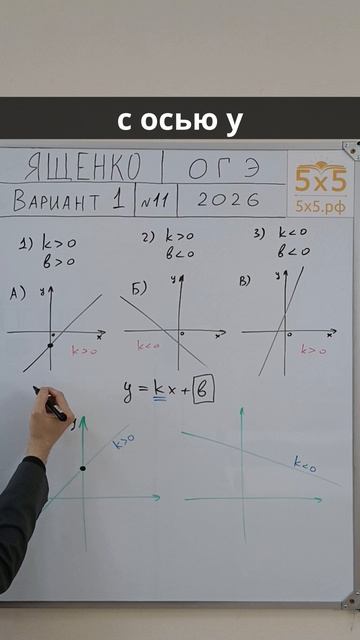 с осью у
ЯЩЕНКО ОГЭ
ВАРИАНТ 1 №11 2026
5х5
5х5.рф
1) k>0 2) k>0 3) k<0
b>0 b<0 b<0
А) y Б) y В) y
0 x 0 x 0 x
k>0 k<0 k>0
y = kx + b
y k>0 k<0